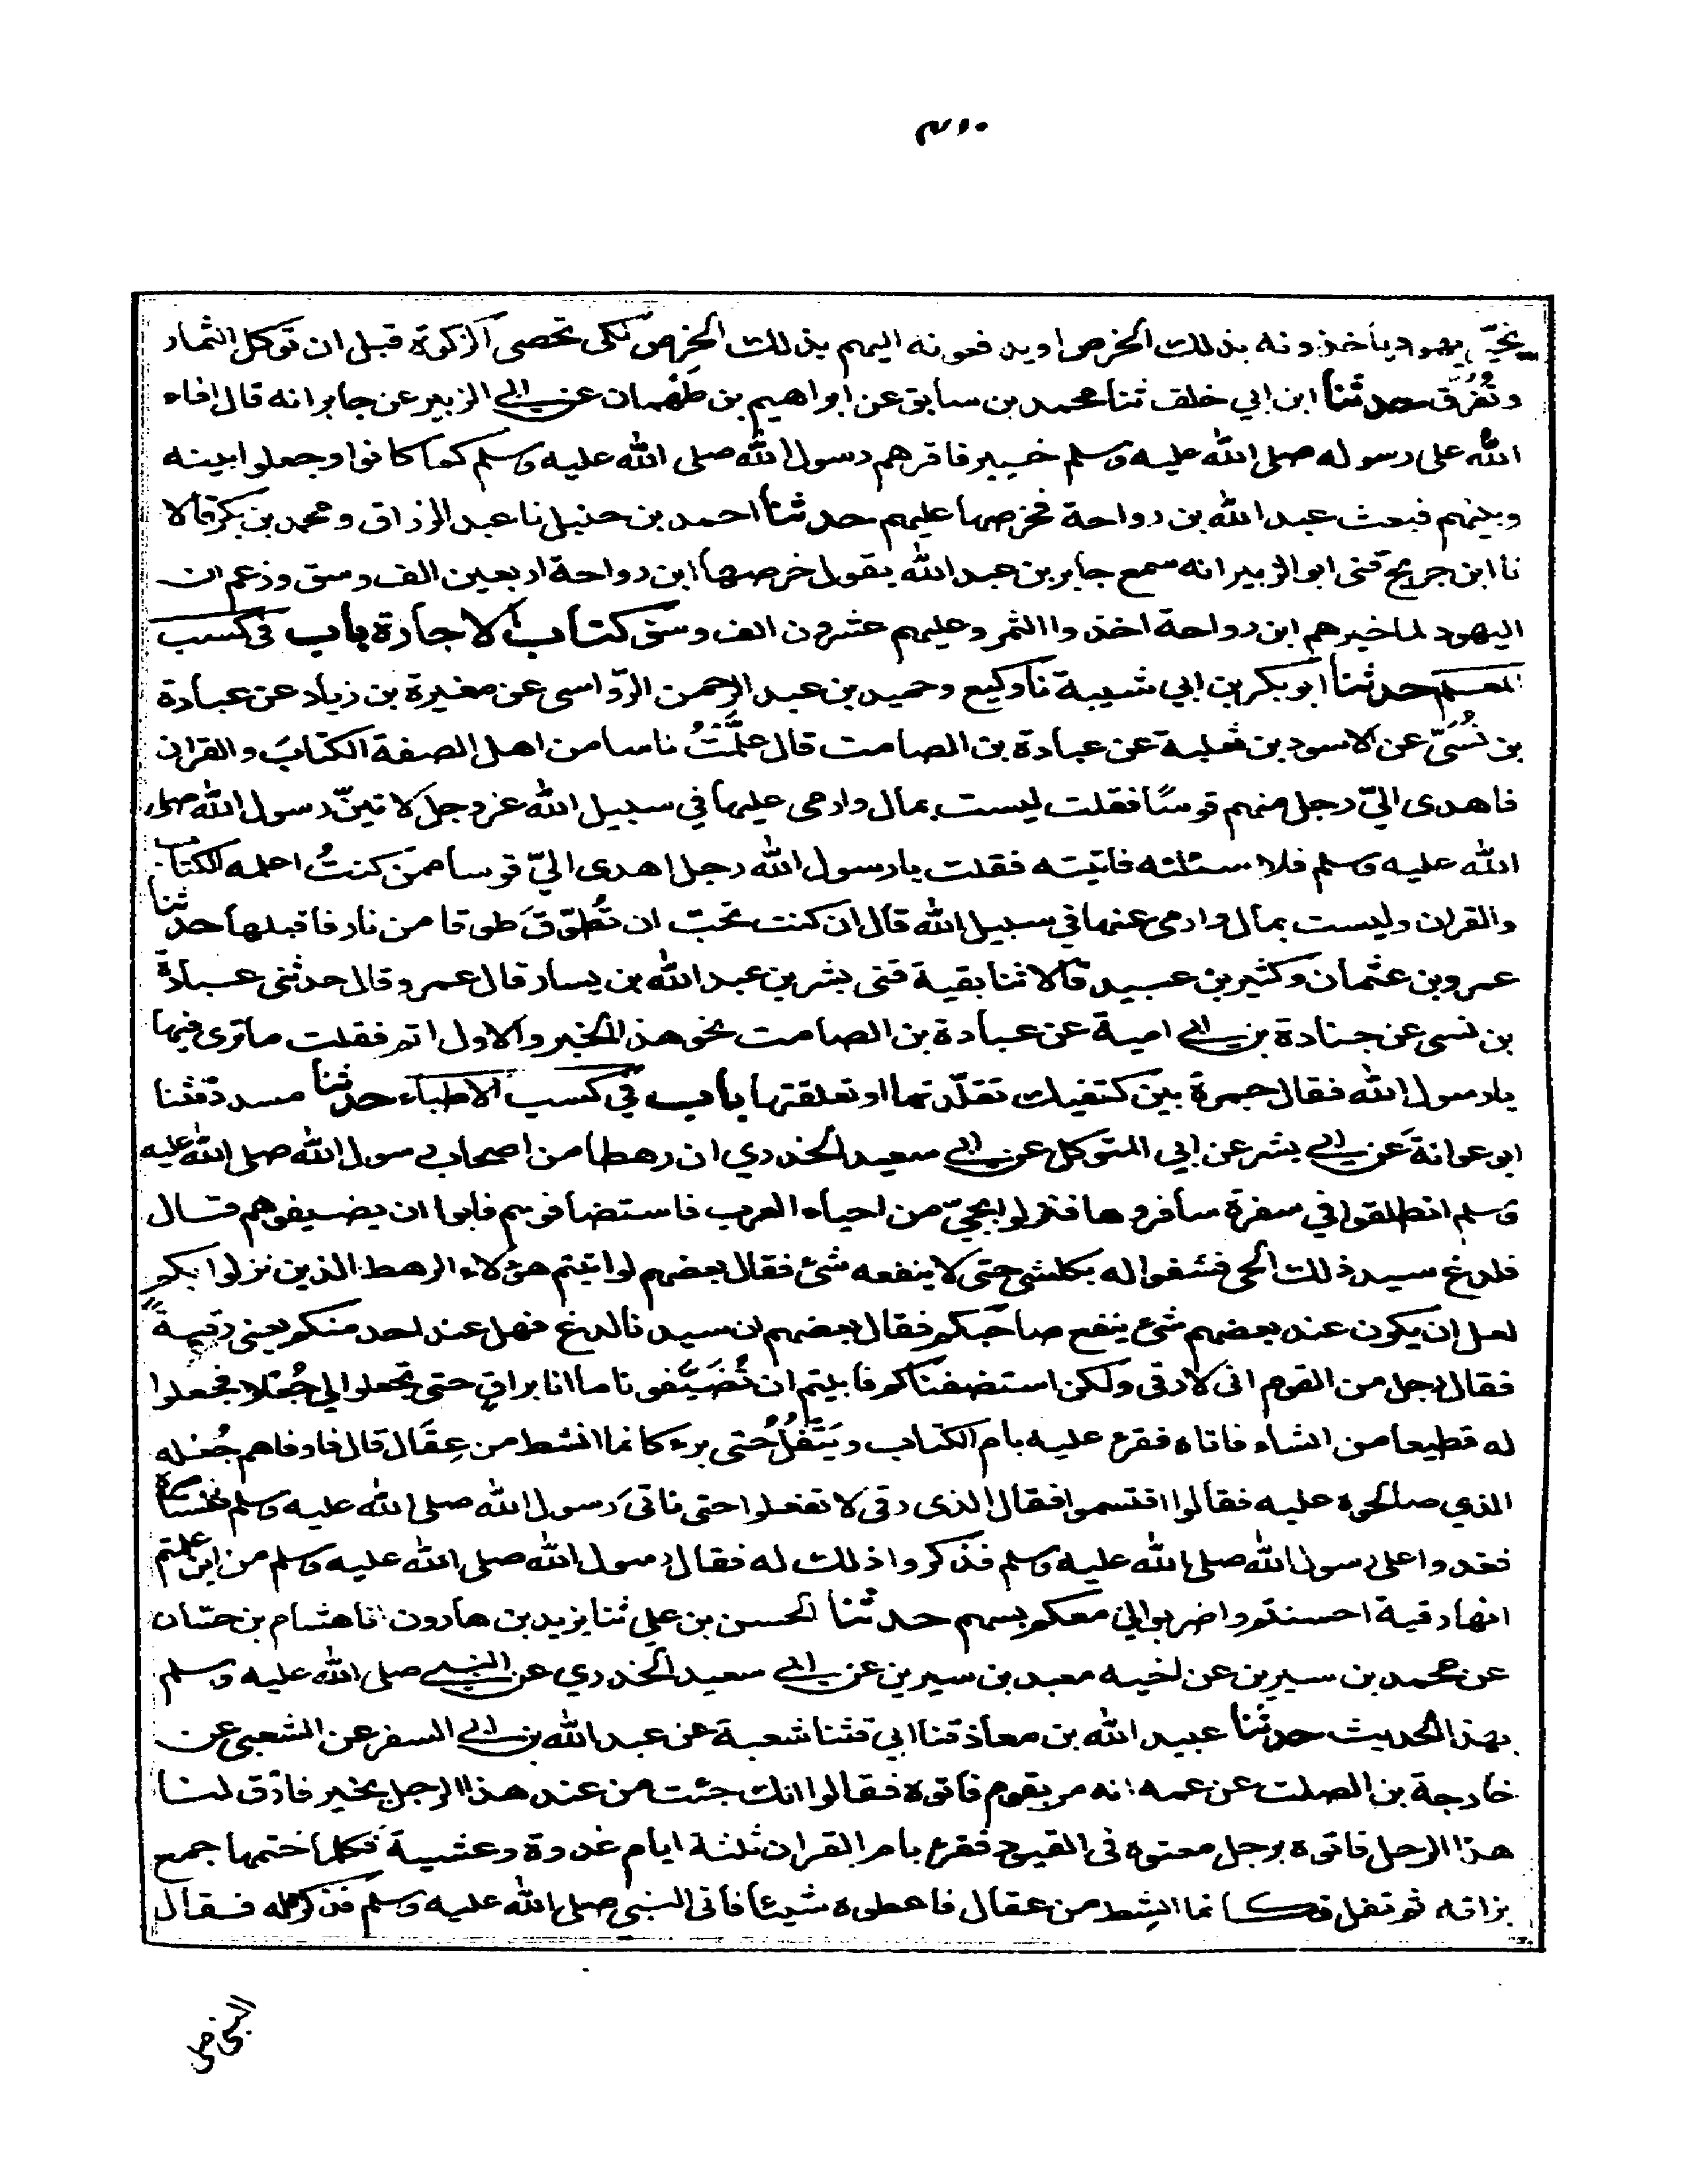 يخيّر يهود يأخذونه بذلك الخرص او يدفعونه اليهم بذلك الخرص لكى تحصى الزكوة قبل ان توكل الثمار
وتُفرّق حدثنا ابن ابي خلف ثنا محمد بن سابق عن ابراهيم بن طهمان عن ابي الزبير عن جابر انه قال افاء
الله على رسوله صلى الله عليه وسلم خيبر فاقرهم رسول الله صلى الله عليه وسلم كما كانوا وجعلها بينه
وبينهم فبعث عبد الله بن رواحة فخرصها عليهم حدثنا احمد بن حنبل نا عبد الرزاق ومحمد بن بكر قالا
نا ابن جريج قثنى ابو الزبير انه سمع جابر بن عبد الله يقول خرصها ابن رواحة اربعين الف وسق وزعم ان
اليهود لما خيرهم ابن رواحة اخذوا الثمر وعليهم عشرون الف وسق كتاب الاجارة باب فى كسب
المعلم حدثنا ابو بكر بن ابي شيبة نا وكيع وحميد بن عبد الرحمن الرّواسى عن مغيرة بن زياد عن عبادة
بن نُسَىّ عن الاسود بن ثعلبة عن عبادة بن الصامت قال علَّمْتُ ناسا من اهل الصفة الكتابَ والقران
فاهدى اليّ رجل منهم قوسًا فقلت ليست بمال وارمى عليها في سبيل الله عز وجل لاتينّ رسول الله صلى
الله عليه وسلم فلاسئلنه فاتيته فقلت يا رسول الله رجل اهدى اليّ قوسا ممن كنتُ اعلمه الكتاب
والقران وليست بمال وارمى عنها في سبيل الله قال ان كنت تحبّ ان تُطوّقَ طوقا من نار فاقبلها حدثنا
عمرو بن عثمان وكثير بن عبيد قالا ثنا بقية قثنى بشر بن عبد الله بن يسار قال عمرو قال حدثنى عبادة
بن نسى عن جنادة بن ابي امية عن عبادة بن الصامت نحو هذا الخبر والاول اتم فقلت ما ترى فيها
يا رسول الله فقال جمرة بين كتفيك تقلّدتها او تعلقتها باب في كسب الاطباء حدثنا مسدد قثنا
ابو عوانة عن ابي بشر عن ابي المتوكل عن ابي سعيد الخدري ان رهطا من اصحاب رسول الله صلى الله عليه
وسلم انطلقوا في سفرة سافروها فنزلوا بحيّ من احياء العرب فاستضافوهم فابوا ان يضيفوهم قال
فلدغ سيد ذلك الحى فشفوا له بكل شئ حتى لا ينفعه شئ فقال بعضهم لو اتيتم هؤلاء الرهط الذين نزلوا بكم
لعل ان يكون عند بعضهم شئ ينفع صاحبكم فقال بعضهم ان سيدنا لدغ فهل عند احد منكم يعنى رقيةً
فقال رجل من القوم انى لارقى ولكن استضفناكم فابيتم ان تُضَيّفونا ما انا براقٍ حتى تجعلوا لي جُعْلا فجعلوا
له قطيعا من الشاء فاتاه فقرء عليه بام الكتاب ويَتْفُلُ حتى برء كانما انشط من عِقَال قال فاوفاهم جُعْله
الذي صالحوه عليه فقالوا اقتسموا فقال الذى رقى لا تفعلوا حتى ناتى رسول الله صلى الله عليه وسلم فنستامره
فغدوا على رسول الله صلى الله عليه وسلم فذكروا ذلك له فقال رسول الله صلى الله عليه وسلم من اين علمتم
انها رقية احسنتم واضربوا لي معكم بسهم حدثنا الحسن بن علي ثنا يزيد بن هارون انا هشام بن حسّان
عن محمد بن سيرين عن اخيه معبد بن سيرين عن ابي سعيد الخدري عن النبى صلى الله عليه وسلم
بهذا الحديث حدثنا عبيد الله بن معاذ قثنا ابي قثنا شعبة عن عبد الله بن ابي السفر عن الشعبى عن
خارجة بن الصلت عن عمه انه مر بقوم فاتوه فقالوا انك جئت من عند هذا الرجل بخير فارق لنا
هذا الرجل فاتوه برجل معتوه فى القيود فقرء بام القران ثلثة ايام غدوة وعشية فكلما ختمها جمع
بزاقه ثم تفل فكانما انشط من عقال فاعطوه شيئا فاتى النبى صلى الله عليه وسلم فذكر له فقال
النبى ص